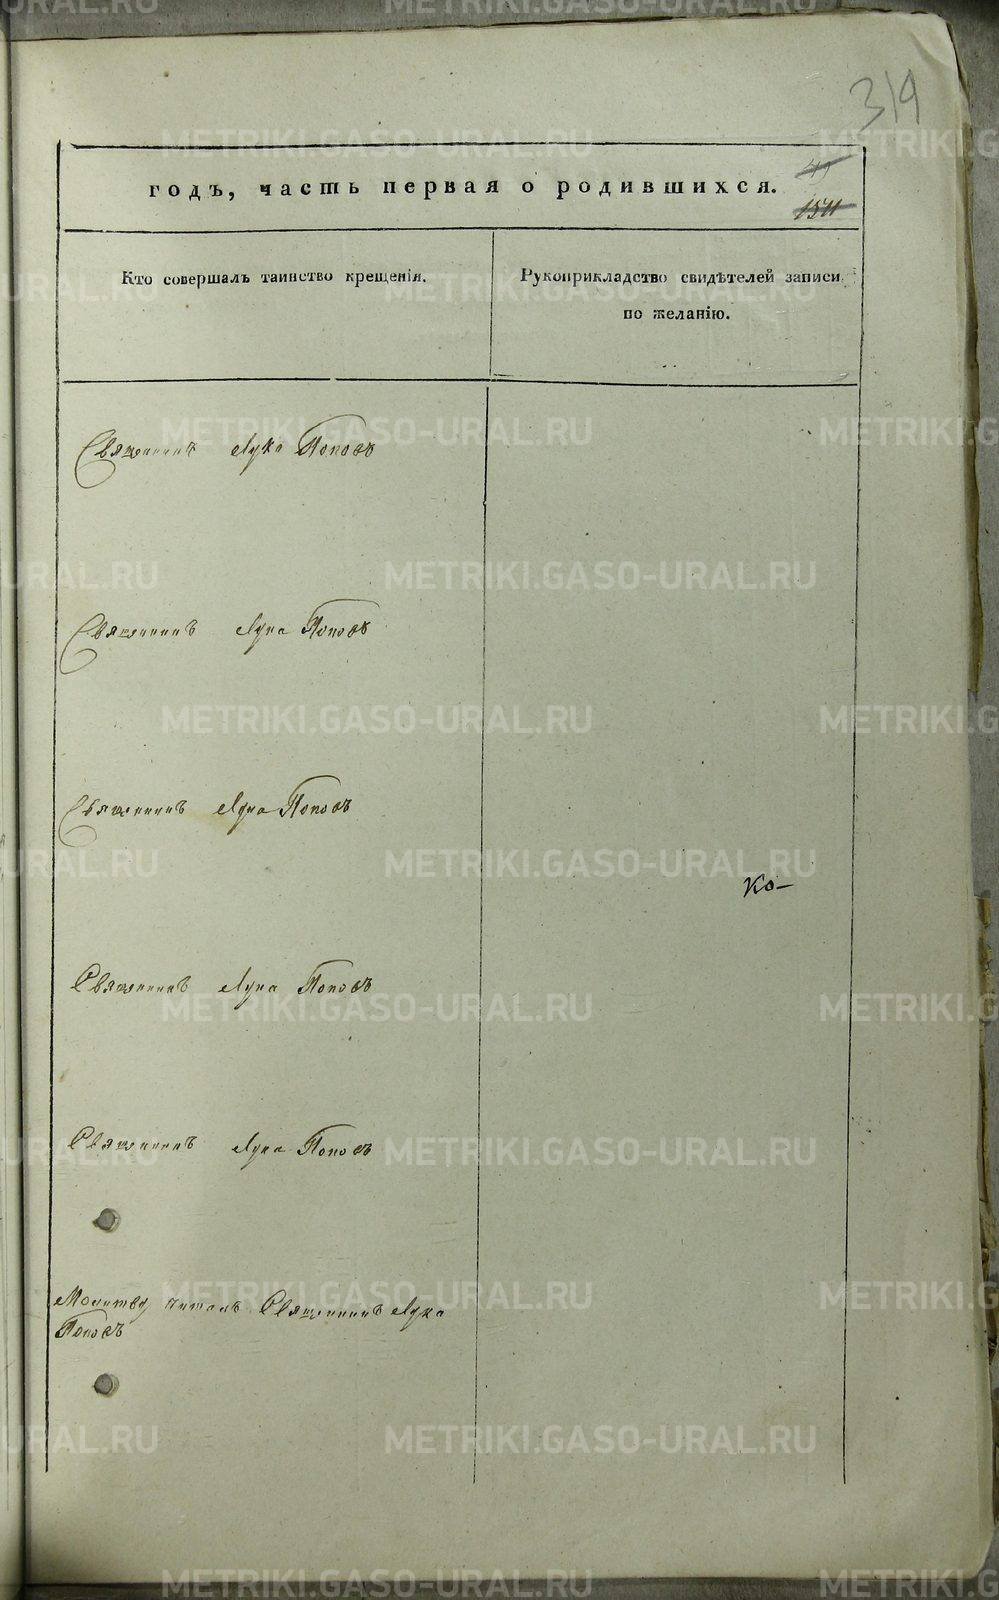 319
годъ, часть первая о родившихся.
Кто совершалъ таинство крещенія.
Рукоприкладство свидѣтелей записи
по желанію.
Священникъ Лука Поповъ
Священникъ Лука Поповъ
Священникъ Лука Поповъ
ко-
Священникъ Лука Поповъ
Священникъ Лука Поповъ
Молитву читалъ Священникъ Лука
Поповъ
METRIKI.GASO-URAL.RU